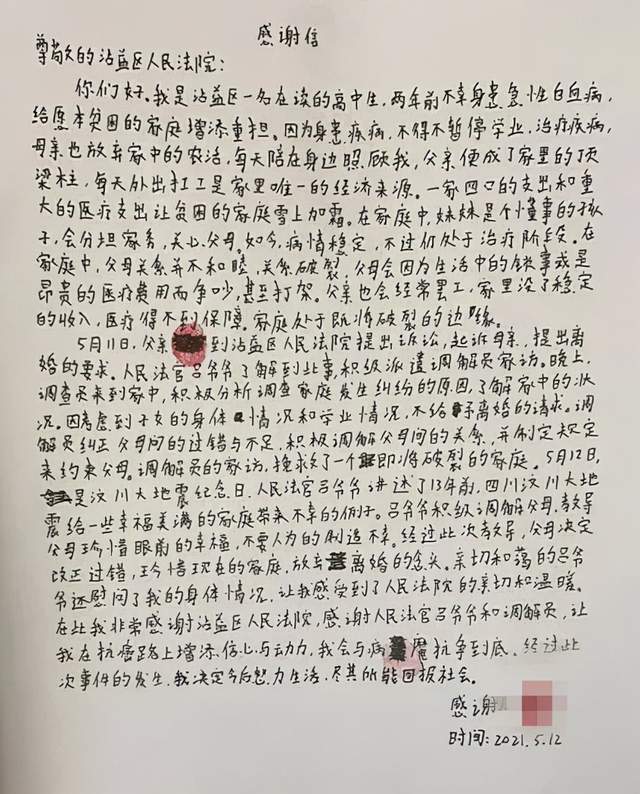 感谢信
尊敬的沾益区人民法院：
你们好。我是沾益区一名在读的高中生，两年前不幸身患急性白血病，
给原本贫困的家庭增添重担。因为身患疾病，不得不暂停学业，治疗疾病，
母亲也放弃家中的农活，每天陪在身边照顾我，父亲便成了家里的顶
梁柱，每天外出打工是家里唯一的经济来源。一家四口的支出和重
大的医疗支出让贫困的家庭雪上加霜。在家庭中，妹妹是个懂事的孩
子，会分担家务，关心父母。如今，病情稳定，不过仍处于治疗阶段。在
家庭中，父母关系并不和睦，关系破裂，父母会因为生活中的锁事或是
昂贵的医疗费用而争吵，甚至打架。父亲也会经常罢工，家里没了稳定
的收入，医疗得不到保障。家庭处于即将破裂的边缘。
5月11日，父亲到沾益区人民法院提出诉讼，起诉母亲，提出离
婚的要求。人民法官吕爷爷了解到些事，积极派遣调解员家访。晚上，
调查员来到家中，积极分析调查家庭发生纠纷的原因，了解家中的状
况。因考虑到子女的身体情况和学业情况，不给予离婚的请求。调
解员纠正父母间的过错与不足，积极调解父母间的关系，并制定规定
来约束父母。调解员的家访，挽救了一个即将破裂的家庭。5月12日，
是汶川大地震纪念日，人民法官吕爷爷讲述了13年前，四川汶川大地
震给一些幸福美满的家庭带来不幸的例子。吕爷爷积极调解父母，教导
父母珍惜眼前的幸福，不要人为的制造不幸。经过此次教导，父母决定
改正过错，珍惜现在的家庭，放弃离婚的念头。亲切和蔼的吕爷
爷还慰问了我的身体情况，让我感受到了人民法院的亲切和温暖。
在此我非常感谢沾益区人民法院，感谢人民法官吕爷爷和调解员，让
我在抗癌路上增添信心与动力，我会与病魔抗争到底。经过此
次事件的发生，我决定今后努力生活，尽其所能回报社会。
感谢
时间：2021.5.12